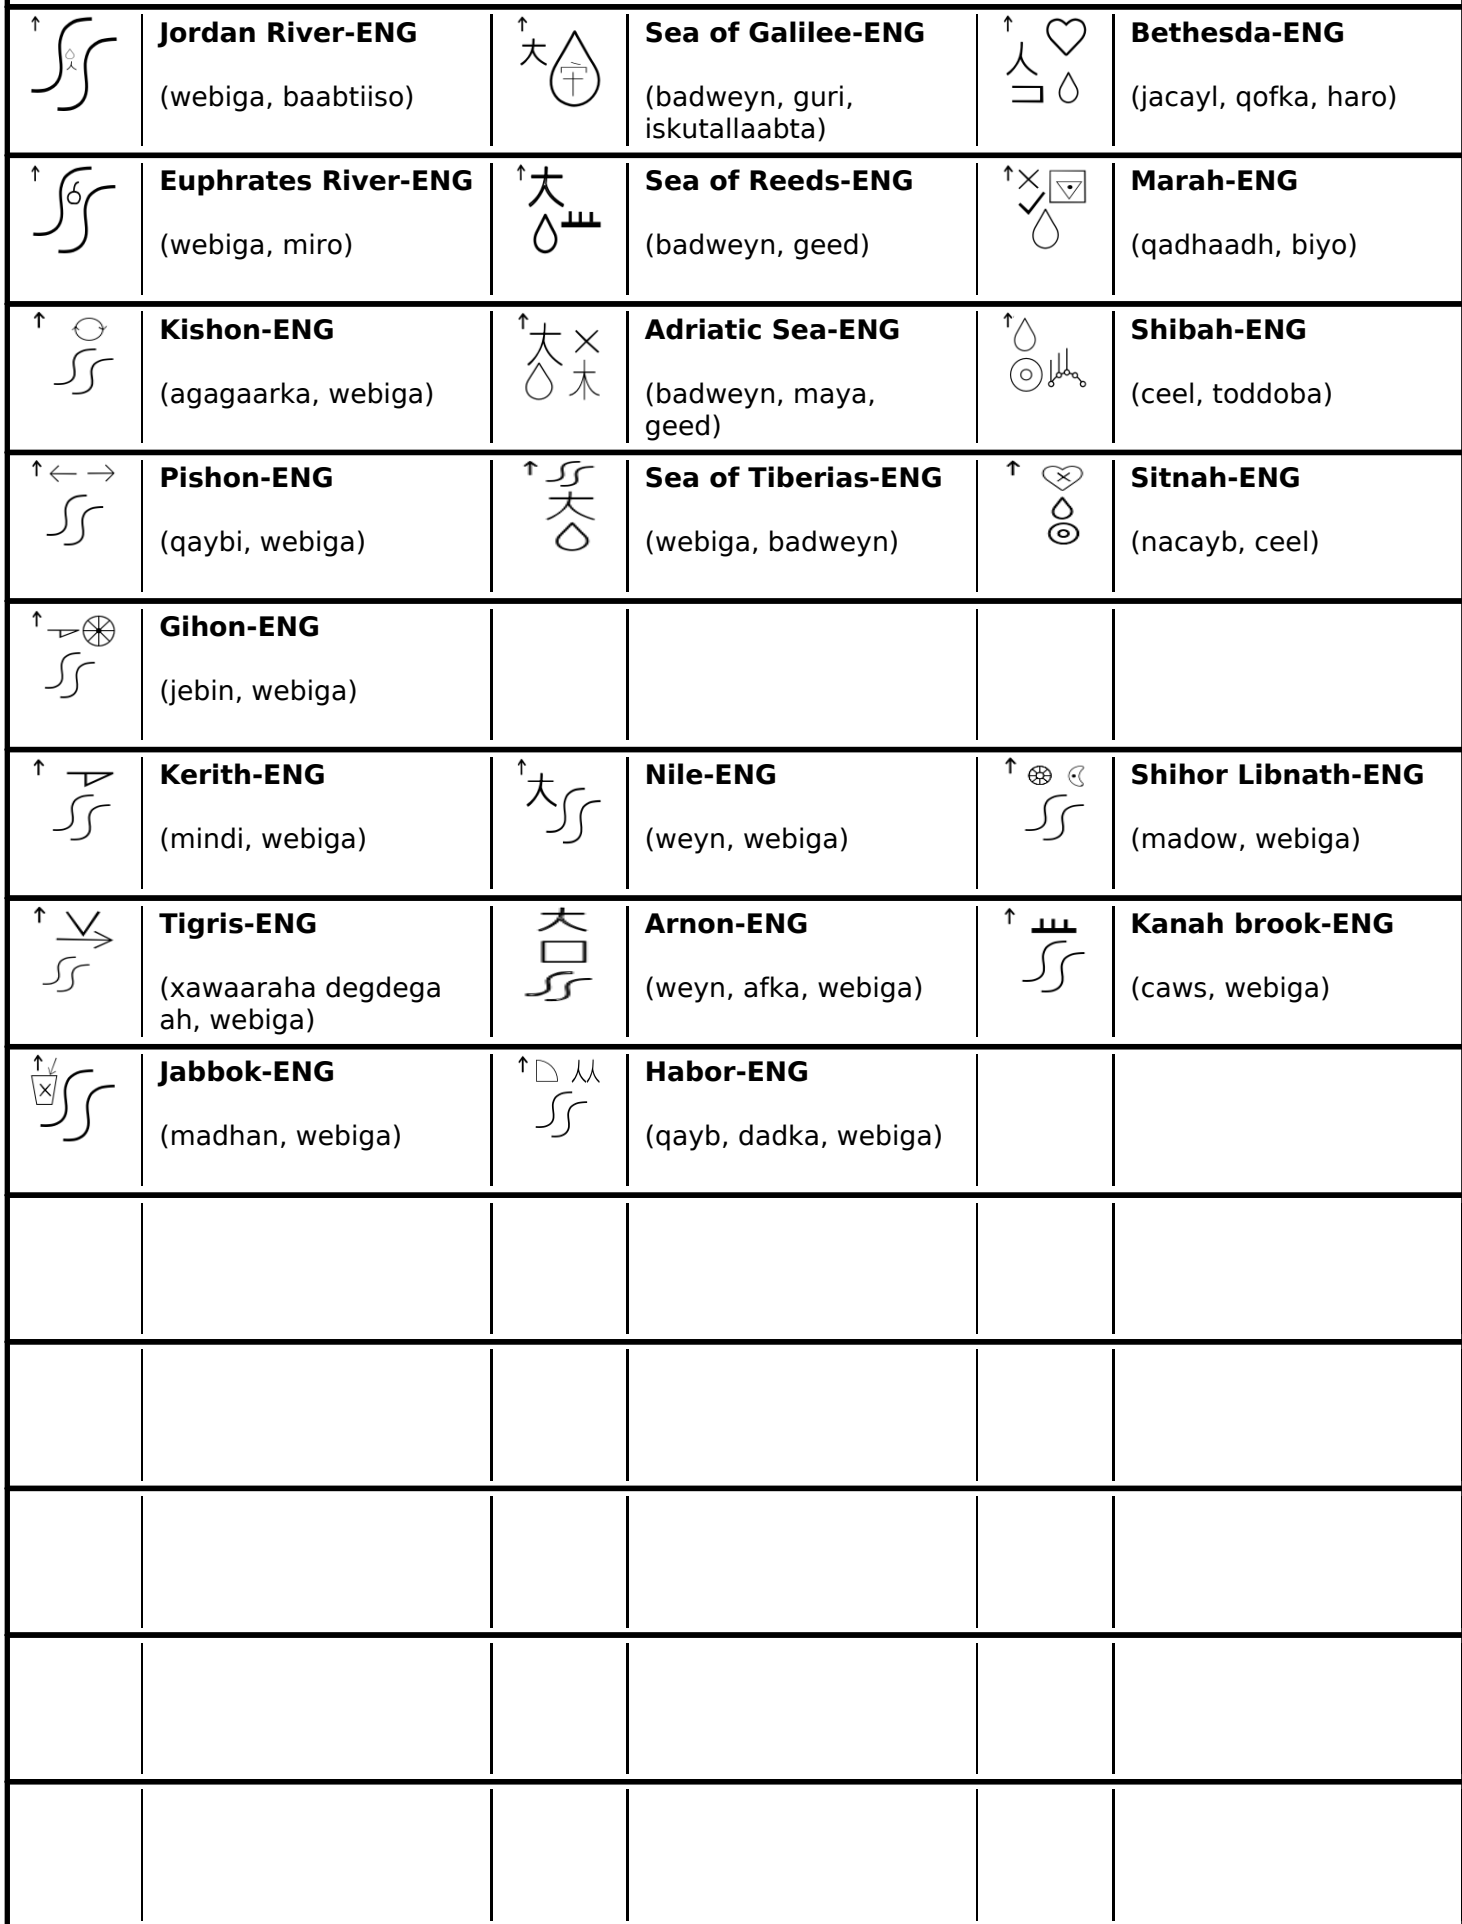 Jordan River-ENG
(webiga, baabtiiso)
Sea of Galilee-ENG
(badweyn, guri,
iskutallaabta)
Bethesda-ENG
(jacayl, qofka, haro)
Euphrates River-ENG
(webiga, miro)
Sea of Reeds-ENG
(badweyn, geed)
Marah-ENG
(qadhaadh, biyo)
Kishon-ENG
(agagaarka, webiga)
Adriatic Sea-ENG
(badweyn, maya,
geed)
Shibah-ENG
(ceel, toddoba)
Pishon-ENG
(qaybi, webiga)
Sea of Tiberias-ENG
(webiga, badweyn)
Sitnah-ENG
(nacayb, ceel)
Gihon-ENG
(jebin, webiga)
Kerith-ENG
(mindi, webiga)
Nile-ENG
(weyn, webiga)
Shihor Libnath-ENG
(madow, webiga)
Tigris-ENG
(xawaaraha degdega
ah, webiga)
Arnon-ENG
(weyn, afka, webiga)
Kanah brook-ENG
(caws, webiga)
Jabbok-ENG
(madhan, webiga)
Habor-ENG
(qayb, dadka, webiga)